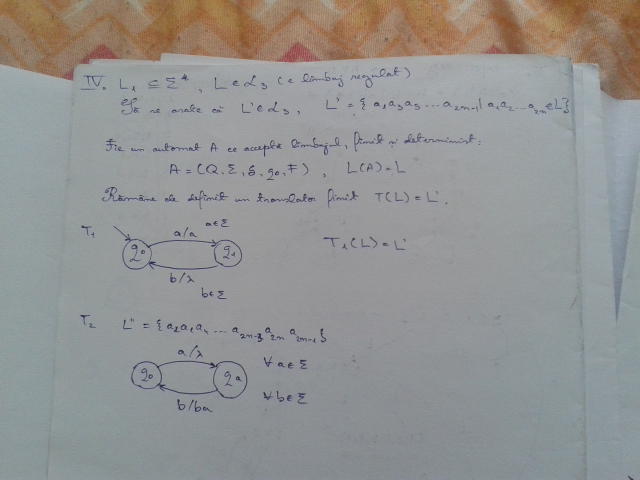 IV. L₁ ⊆ Σ*, L ∈ L₃ (e limbaj regulat)
Să se arate că L' ∈ L₃, L' = { a₁a₃a₅ ... a₂ₙ₋₁ | a₁a₂ ... a₂ₙ ∈ L }
Fie un automat A ce acceptă limbajul, finit și determinist:
A = (Q, Σ, δ, q₀, F), L(A) = L
Rămâne de definit un translator finit T(L) = L'.
T₁
q₀ a/a a∈Σ q₁
b/λ b∈Σ
T₁(L) = L'
T₂ L'' = { a₂a₁a₄ ... a₂ₙ₋₃ a₂ₙ a₂ₙ₋₁ }
q₀ a/λ ∀a∈Σ qₐ
b/ba ∀b∈Σ